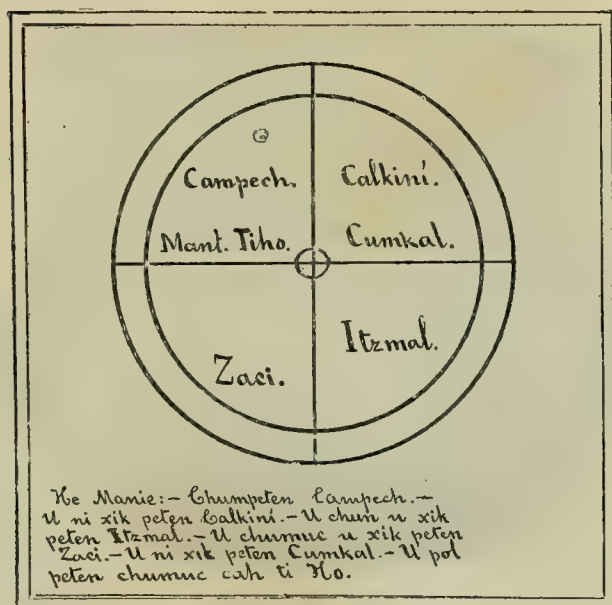 Campech.
Calkiní.
Mant. Tiho.
Cumkal.
Itzmal.
Zaci.
He Manie:- Chumpeten Campech.-
U ni xik peten Calkiní.- U chun u xik
peten Itzmal.- U chumuc u xik peten
Zaci.- U ni xik peten Cumkal.- U pol
peten chumuc cah ti Ho.